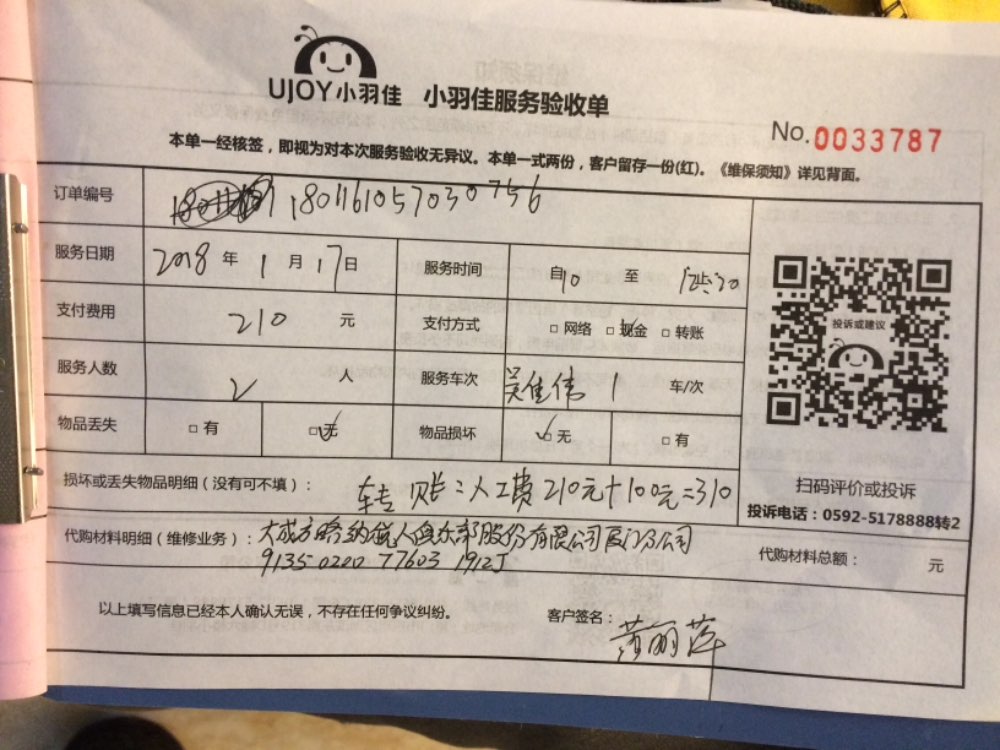 UJOY小羽佳 小羽佳服务验收单
No.0033787
本单一经核签，即视为对本次服务验收无异议。本单一式两份，客户留存一份(红)。《维保须知》详见背面。
订单编号 1801161057030756
服务日期 2018 年 1 月 17 日 服务时间 自10 至
支付费用 210 元 支付方式 □ 网络 □ 现金 □ 转账
投诉或建议
服务人数 2 人 服务车次 吴佳伟 1 车/次
物品丢失 □ 有 □ 无 物品损坏 □ 无 □ 有
损坏或丢失物品明细（没有可不填）： 转账：人工费210元+100元=310
扫码评价或投诉
投诉电话：0592-5178888转2
代购材料明细（维修业务）： 大成方略纳税人俱乐部股份有限公司厦门分公司
9135 0220 77603 1912J
代购材料总额： 元
以上填写信息已经本人确认无误，不存在任何争议纠纷。
客户签名： 黄丽萍